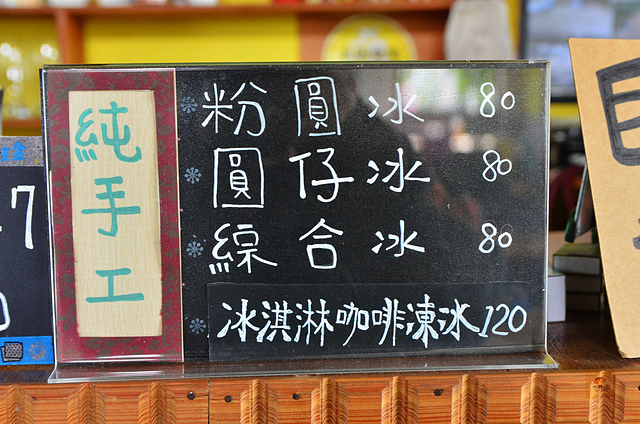 純手工
粉圓冰 80
圓仔冰 80
綜合冰 80
冰淇淋咖啡凍冰120
7